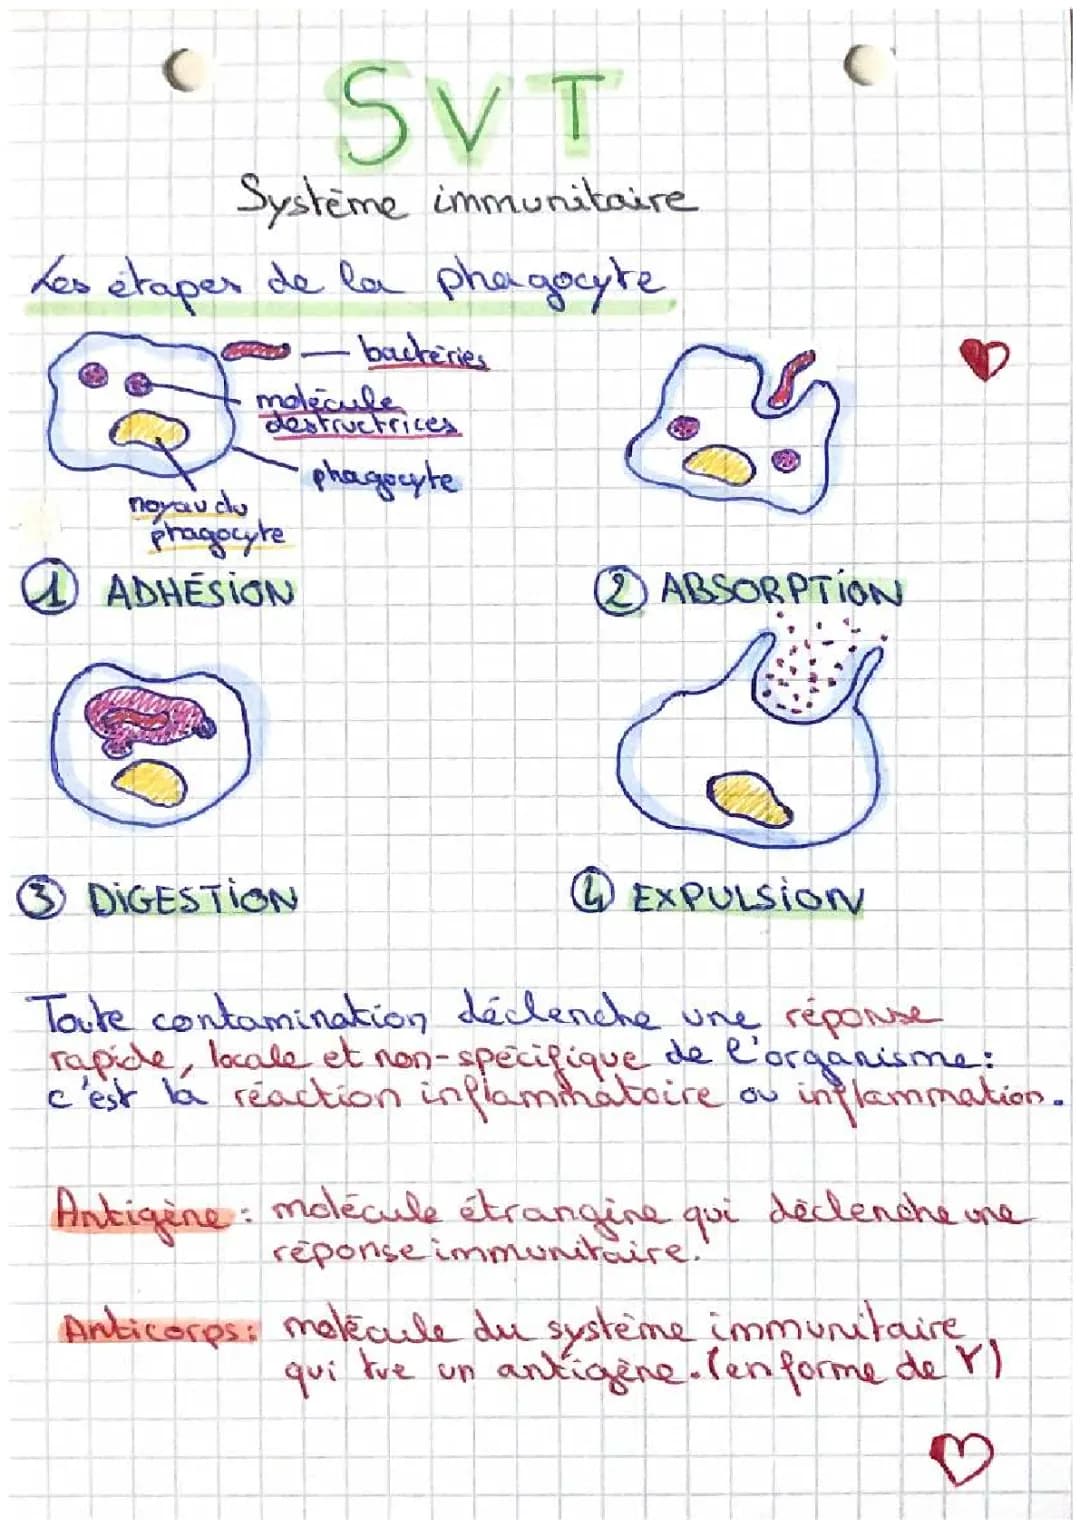 SVT
Système immunitaire
Les étapes de la phagocyte
bactéries
molécule
destructrices
phagocyte
noyau du
phagocyte
1 ADHÉSION
2 ABSORPTION
3 DIGESTION
4 EXPULSION
Toute contamination déclenche une réponse
rapide, locale et non-spécifique de l'organisme:
c'est la réaction inflammatoire ou inflammation.
Antigène: molécule étrangine qui déclenche une
réponse immunitaire.
Anticorps: molécule du système immunitaire
qui tue un antigène. (en forme de Y)